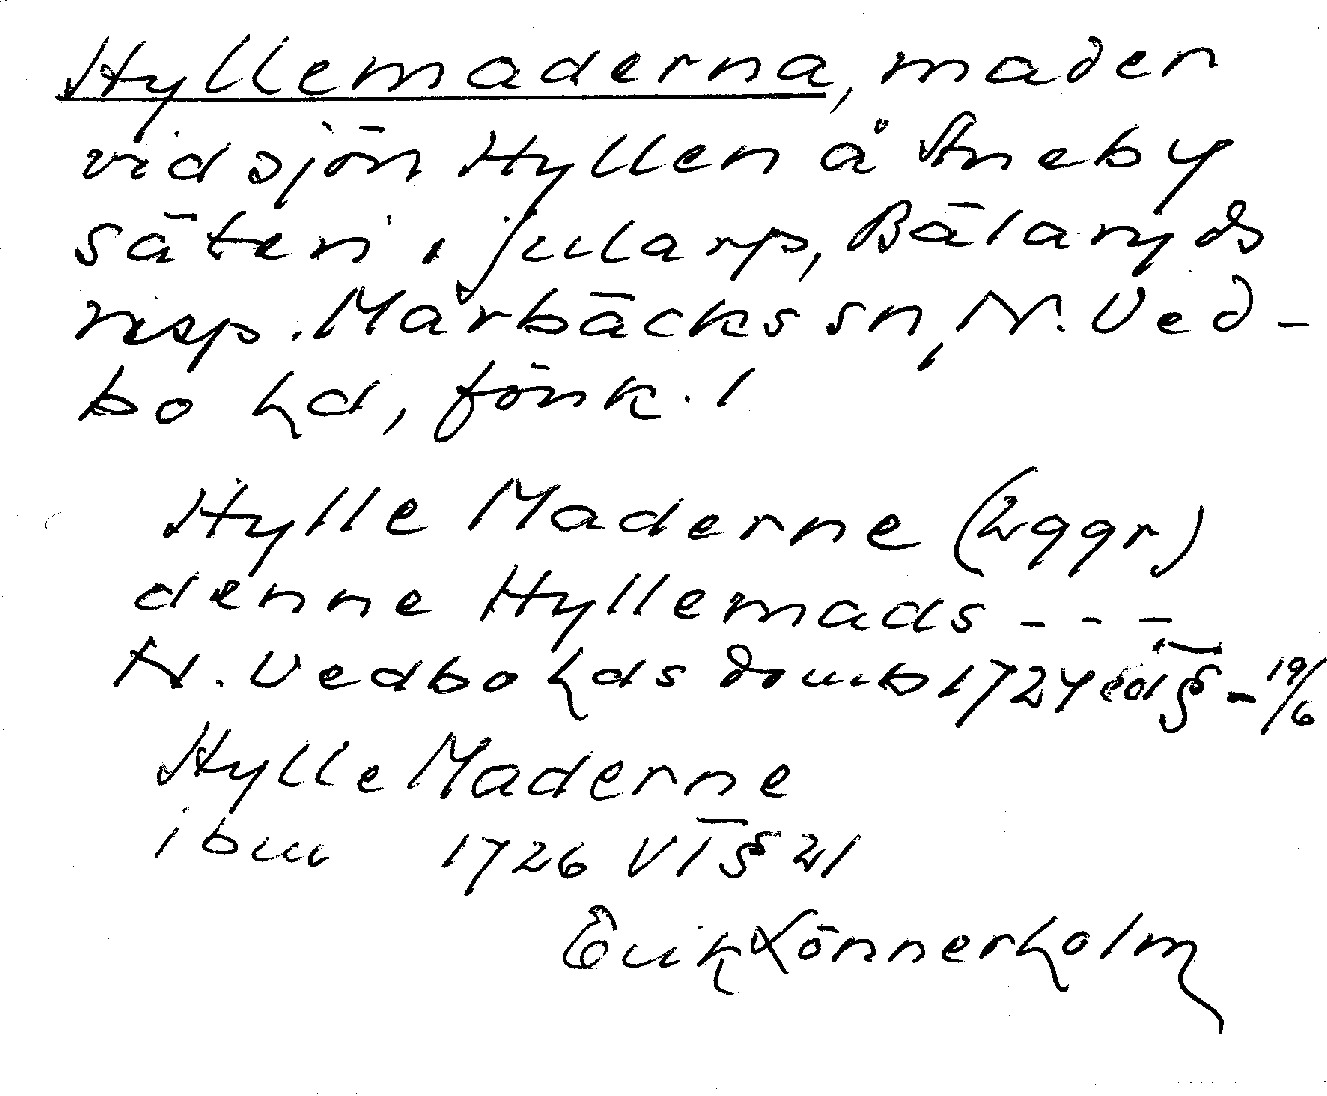 Hyllemaderna, mader
vid sjön Hyllen å Aneby
säteri i Jularp, Bälaryds
resp. Marbäcks sn, N. Ved-
bo hd, Jönk. l
Hylle Maderne (2ggr)
denne Hyllemads - - -
N. Vedbo hds domb 1724 § - 19/6
Hylle Maderne
ibm 1726 VI § 21
Erik Lönnerholm